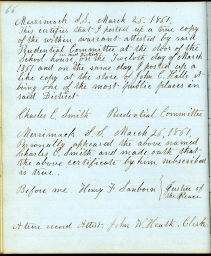 66
Merrimack S.S. March 25, 1851.
This certifies that I posted up a true copy
of the within warrant attested by said
Prudential Committee at the door of the
School house, in said District on the twelfth day of March
1851 and on the same day I posted up a
like copy at the store of John C. Hall, it
being one of the most public places in
said District
Charles C. Smith Prudential Committee
Merrimack S.S. March 25, 1851.
Personally appeared the above named
Charles C. Smith and made oath that
the above certificate by him subscribed
is true.
Before me Henry F. Sanborn } Justice of
the Peace
A true record Attest. John W. Heath. Clerk